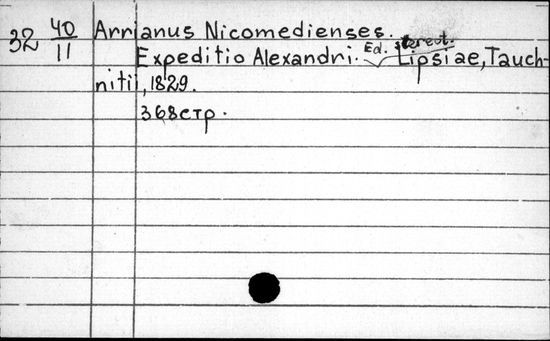 32 40/11
Arrianus Nicomedienses.
Expeditio Alexandri. Ed. stereot. Lipsiae, Tauch-
nitii, 1829.
368 стр.